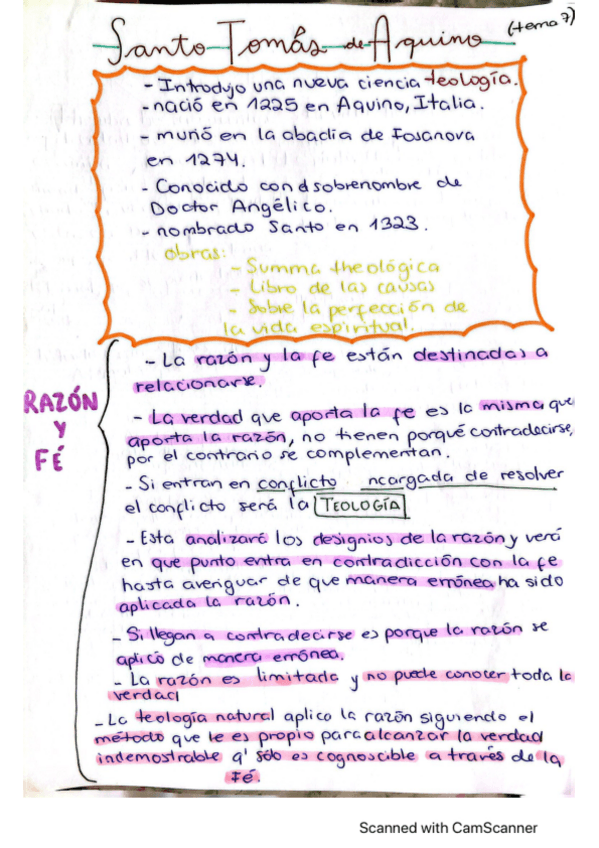 Santo Tomás de Aquino (tema 7)
- Introdujo una nueva ciencia teología.
- nació en 1225 en Aquino, Italia.
- murió en la abadía de Fosanova
en 1274.
- Conocido con el sobrenombre de
Doctor Angélico.
- nombrado Santo en 1323.
obras:
- Summa theológica
- Libro de las causas
- Sobre la perfección de
la vida espiritual.
RAZÓN
Y
FÉ
- La razón y la fe están destinadas a
relacionarse.
- La verdad que aporta la fe es la misma que
aporta la razón, no tienen porqué contradecirse,
por el contrario se complementan.
- Si entran en conflicto ncargada de resolver
el conflicto será la TEOLOGÍA
- Esta analizará los designios de la razón y verá
en que punto entra en contradicción con la fe
hasta averiguar de que manera errónea ha sido
aplicada la razón.
- Si llegan a contradecirse es porque la razón se
aplicó de manera errónea.
- La razón es limitada y no puede conocer toda la
verdad
- La teología natural aplica la razón siguiendo el
método que le es propio para alcanzar la verdad
indemostrable q' sólo es cognoscible a través de la
Fé.
Scanned with CamScanner